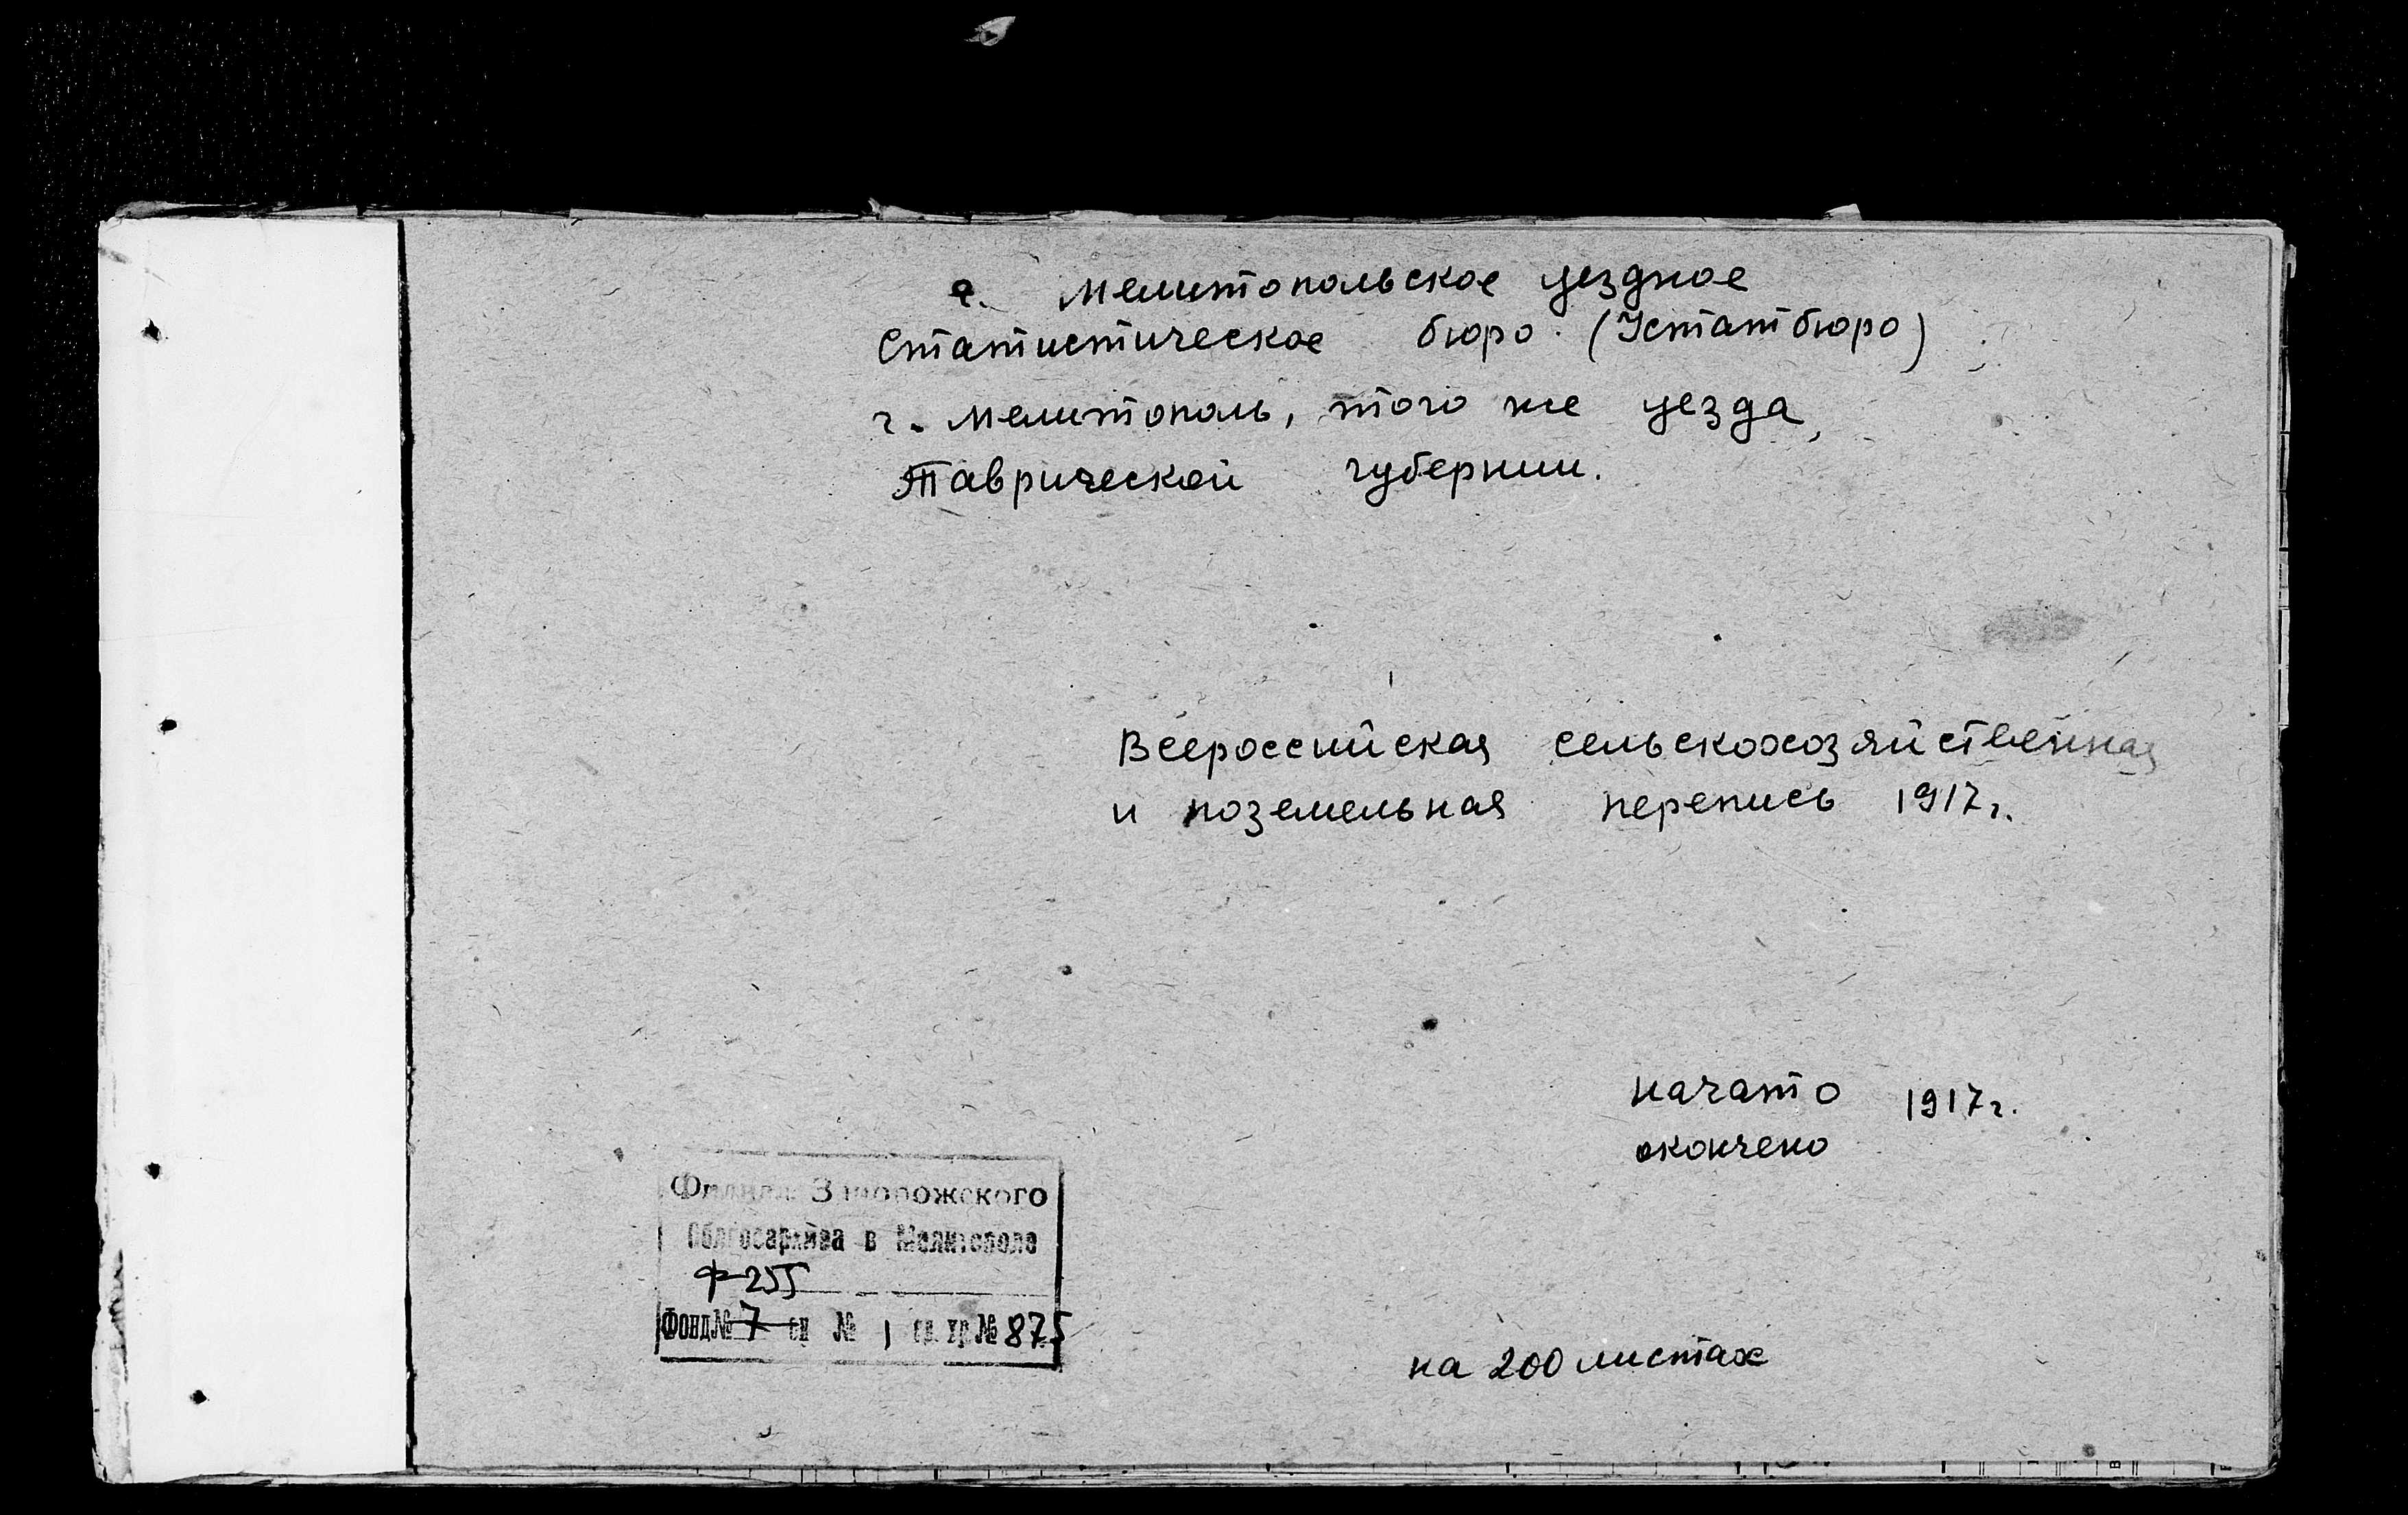 г. Мелитопольское уездное
Статистическое бюро. (Устатбюро)
г. Мелитополь, того же уезда,
Таврической губернии.
Всероссийская сельскохозяйственная
и поземельная перепись 1917г.
начато 1917г.
окончено
Филиал Запорожского
Облгосархива в Мелитополе
Ф-255
Фонд № 7 оп № 1 ед. хр. № 875
на 200 листах